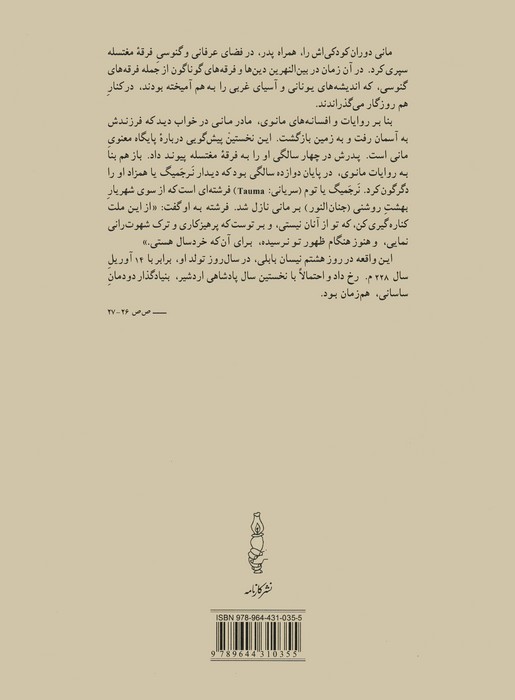 مانی دوران کودکی‌اش را، همراه پدر، در فضای عرفانی و گنوسیِ فرقهٔ مغتسله
سپری کرد. در آن زمان در بین‌النهرین دین‌ها و فرقه‌های گوناگون از جمله فرقه‌های
گنوسی، که اندیشه‌های یونانی و آسیای غربی را به هم آمیخته بودند، در کنارِ
هم روزگار می‌گذراندند.
بنا بر روایات و افسانه‌های مانوی، مادر مانی در خواب دید که فرزندش
به آسمان رفت و به زمین بازگشت. این نخستین پیش‌گویی دربارهٔ پایگاه معنویِ
مانی است. پدرش در چهار سالگی او را به فرقهٔ مغتسله پیوند داد. باز هم بنا
به روایات مانوی، در پایان دوازده سالگی بود که دیدار نَرجَمیگ یا همزاد او را
دگرگون کرد. نَرجَمیگ یا توم (سریانی: Tauma) فرشته‌ای است که از سوی شهریارِ
بهشتِ روشنی (جنان‌النور) بر مانی نازل شد. فرشته به او گفت: «از این ملت
کناره‌گیری کن، که تو از آنان نیستی، و بر توست که پرهیزکاری و ترک شهوت‌رانی
نمایی، و هنوز هنگام ظهور تو نرسیده، برای آن‌که خردسال هستی.»
این واقعه در روز هشتم نیسان بابلی، در سال‌روز تولد او، برابر با ۱۴ آوریلِ
سال ۲۲۸ م. رخ داد و احتمالاً با نخستین سال پادشاهی اردشیر، بنیادگذار دودمانِ
ساسانی، هم‌زمان بود.
ــــــ ص‌ص ۲۶-۲۷
نشر کارنامه
ISBN 978-964-431-035-5
9 789644 310355